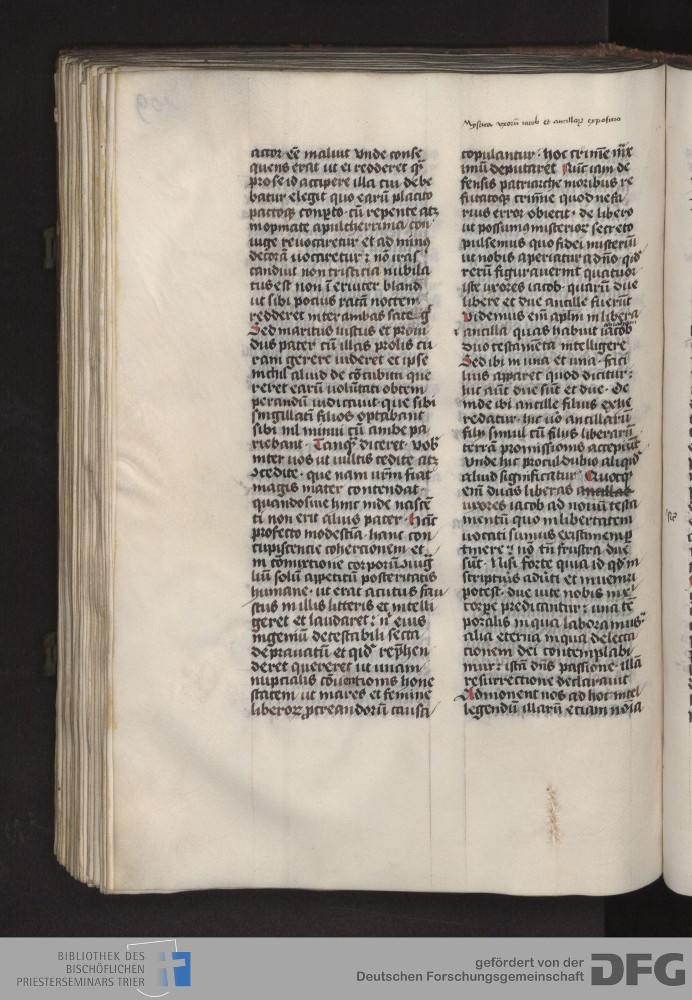 Mystica uxorū iacob et ancillarꝫ expositio
actor eē maluit vnde conse
quens erat ut ei redderet qᷓ
pro se id accipere illa cui debe
batur elegit quo earū placito
pactoqꝫ conpto · cū repente atqꝫ
inopinate a pulcherrima con
iuge reuocaretur et ad minus
decorā uocaretur : nō iras
candiuit non tristicia nubila
tus est non ī eriuter bland
ut sibi pocius ratā noctem
redderet inter ambas sate gͥt
Sed maritus iustus et proui
dus pater cū illas prolis cu
ram gerere uideret et ipse
nichil aliud de cōcubitu que
reret earū volūtati obtem
perandū iudicauit que sibi
singillatī filios optabant
sibi nil minui cū ambe pa
riebant · Tanqᷓ diceret · vob̄
inter uos ut uultis cedite atqꝫ
cedite · que nam vrm̄ fiat
magis mater contendat ·
quandoꝗue hinc inde nascē
ti non erit alius pater · Hāc
profecto modestīa · hanc con
cupiscencie cohercionem et
in cōmixtione corporū
liū solū appetitū posteritatis
humane · ut erat acutus fau
stus in illis litteris et intelli
geret et laudaret : nͥ eius
ingeniū detestabili secta
depravatū et qid rep̄hen
deret quereret ut unam
nuptialis cōuentionis hone
statem ut mares et femine
liberorꝫ ꝓcreandorū causa
copulantur · hoc crimē m̄xͤ
imū deputaret Nūc iam de
fensis patriarche moribus re
futatoqꝫ crimīe quod nefa
rius error obiecit · de libero
ut possumꝰ misteriorꝫ secreto
pulsemus quo fidei misteriū
ut nobis aperiatur a dn̄o qid
rerū figurauerint quatuor
iste uxores iacob · quarū due
libere et due ancille fuerūt
Videmus enī apl̄m in libera
et ancilla quas habuit abraham iacob
duo testamēta intelligere
Sed ibi in una et una · faci
lius apparet quod dicitur :
hic aūt due sūt et due · De
inde ibi ancille filius exhe
redatur · hic uō ancillarū
filii simul cū filiis liberarū
terrā promissionis accepiūt
Vnde hic procul dubio aliqid
aliud significatur Quoꝙꝫ
enī duas liberas ancillas
uxores iacob ad nouū testa
mentū quo in libertatem
uocati sumus existimemꝰ p
tinere : nō tn̄ frustra due
sūt · Nisi forte quia id qd in
scripturis aduti et inueniri
potest · due uite nobis in xͥ
corpe predicantur : una tē
poralis in qua laboramus ·
alia eterna in qua delecta
cionem dei contemplabi
mur : istā dn̄s passione · illā
resurrectione declarauit
Admonent nos ad hoc intel
legendū illarū etiam noīa
BIBLIOTHEK DES
BISCHÖFLICHEN
PRIESTERSEMINARS TRIER
gefördert von der
Deutschen Forschungsgemeinschaft
DFG